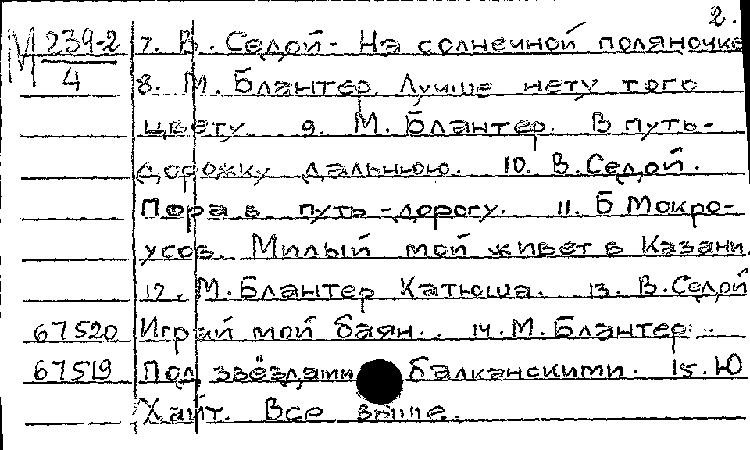 2.
М 239-2 7. В. Седой - На солнечной поляночке
4 8. М. Блантер Лучше нету того
цвету 9. М. Блантер. В путь-
дорожку дальнюю. 10. В. Седой.
Пора в путь-дорогу. 11. Б Мокро-
усов. Милый мой живет в Казани.
12. М. Блантер Катюша. 13. В. Седой
67520 Играй мой баян.. 14. М. Блантер
67519 Под звёздами балканскими. 15. Ю
Хайт. Все выше.